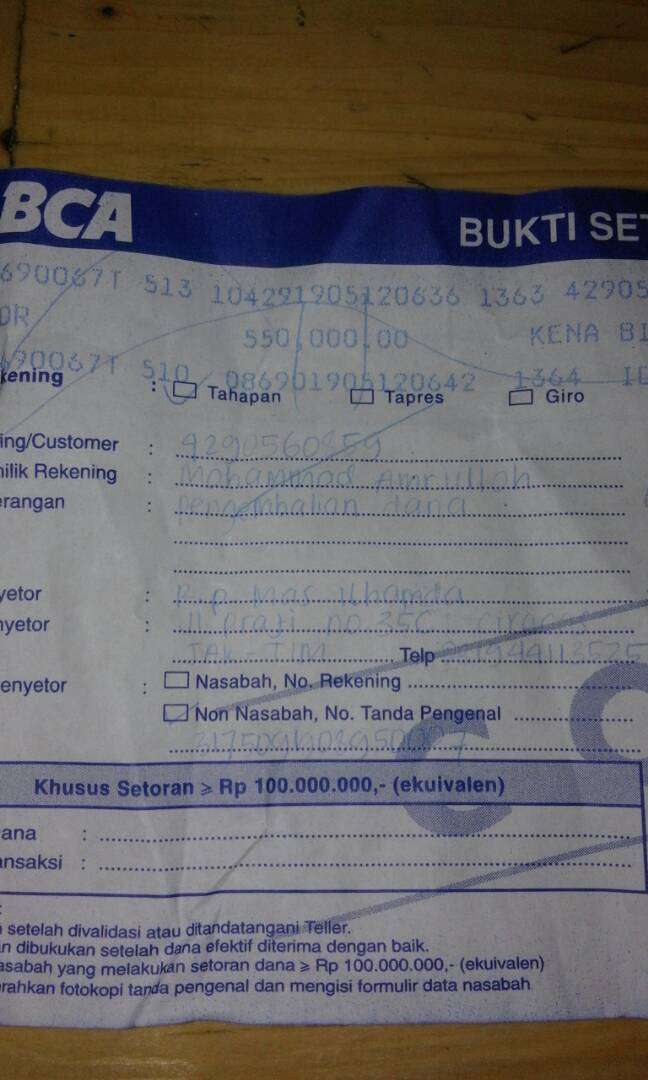 BCA BUKTI SET
690067T 513 104291905120636 1363 42905
OR 550,000.00 KENA BI
690067T 510 086901905120642 1364 IE
kening : Tahapan Tapres Giro
ing/Customer : 4290560859
nilik Rekening : Mohammad Amrulloh
erangan : pengembalian dana
yetor : R.p Mas Ilhamda
nyetor : Jl praji no.35C
JAK-TIM Telp
enyetor : Nasabah, No. Rekening
Non Nasabah, No. Tanda Pengenal
Khusus Setoran ≥ Rp 100.000.000,- (ekuivalen)
ana :
ansaksi :
:
n setelah divalidasi atau ditandatangani Teller.
n dibukukan setelah dana efektif diterima dengan baik.
asabah yang melakukan setoran dana ≥ Rp 100.000.000,- (ekuivalen)
erahkan fotokopi tanda pengenal dan mengisi formulir data nasabah